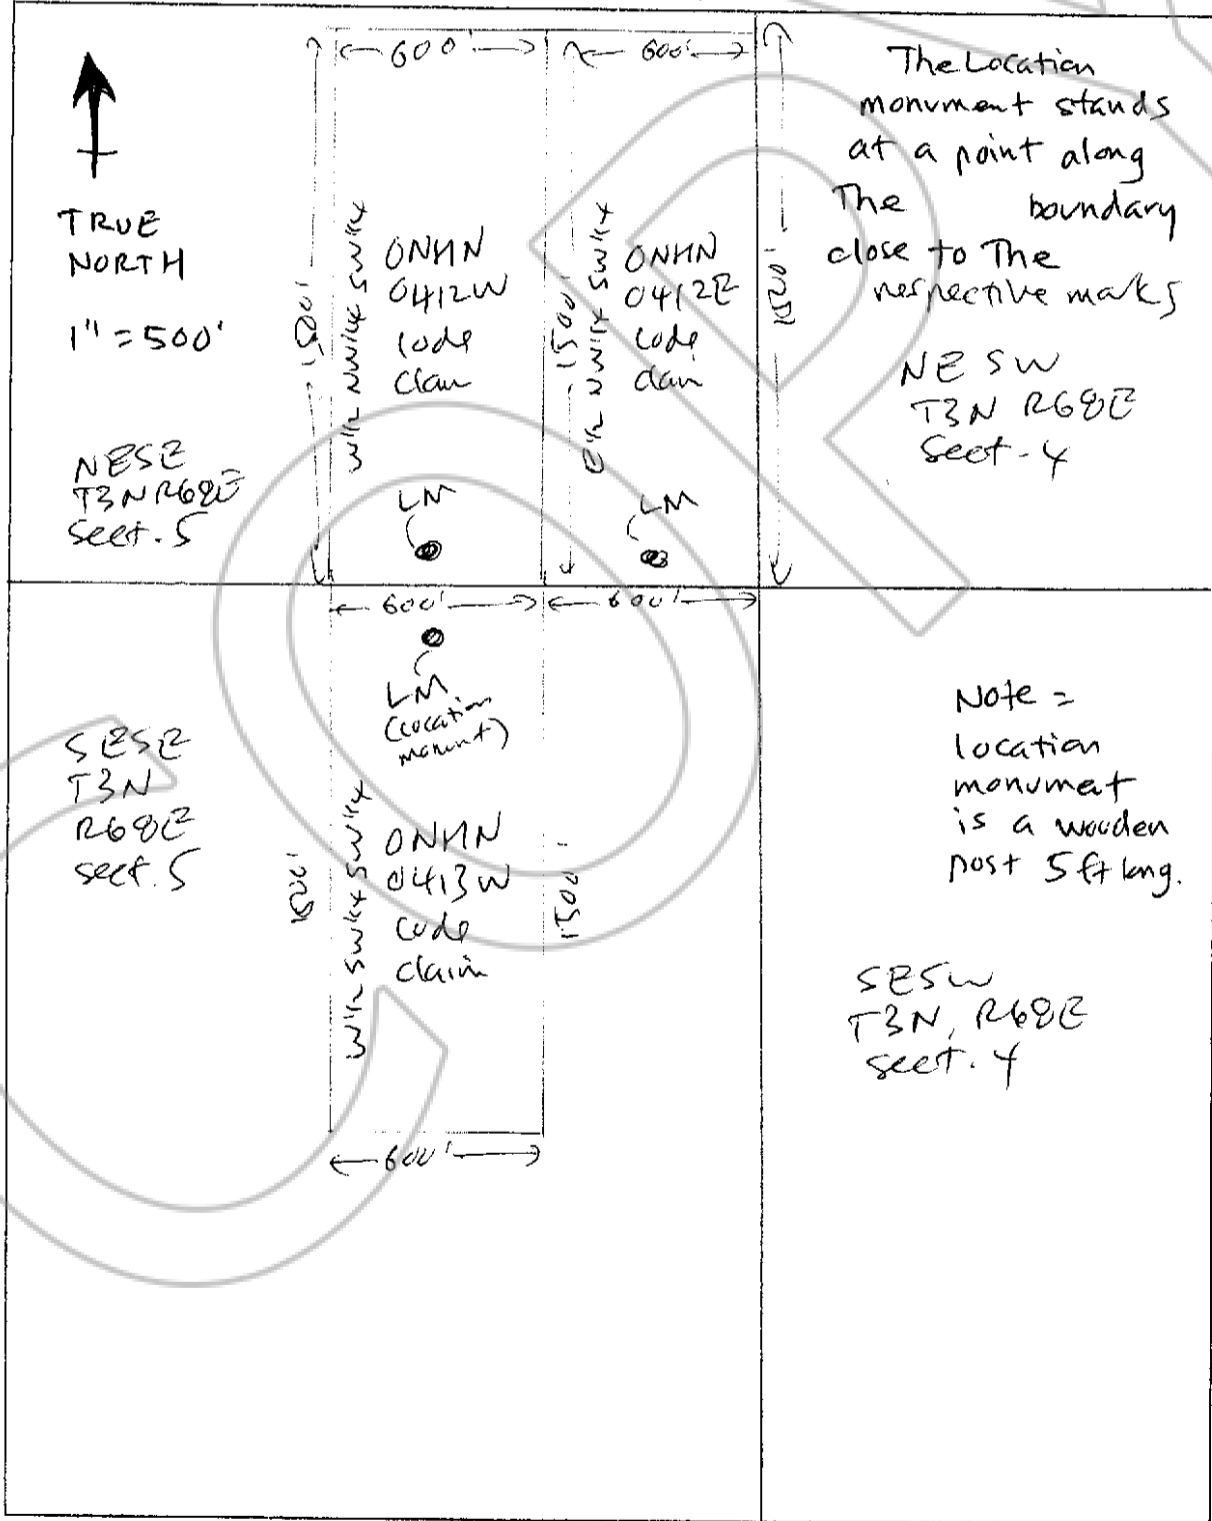 TRUE
NORTH
1" = 500'
NESE
T3N R68E
sect. 5
600'
600'
1500'
1500'
1500'
W1/2 NW1/4 SW1/4
ONHN
0412W
lode
claim
LM
E1/2 NW1/4 SW1/4
ONHN
0412E
lode
claim
LM
The Location
monument stands
at a point along
The boundary
close to The
respective marks
NESW
T3N R68E
Sect-4
600'
600'
LM
(Location
monumt)
SESE
T3N
R68E
sect. 5
1500'
W1/2 SW1/4 SW1/4
ONHN
0413W
lode
claim
1500'
600'
Note =
location
monumet
is a wooden
post 5 ft long.
SESW
T3N, R68E
sect. 4
COP